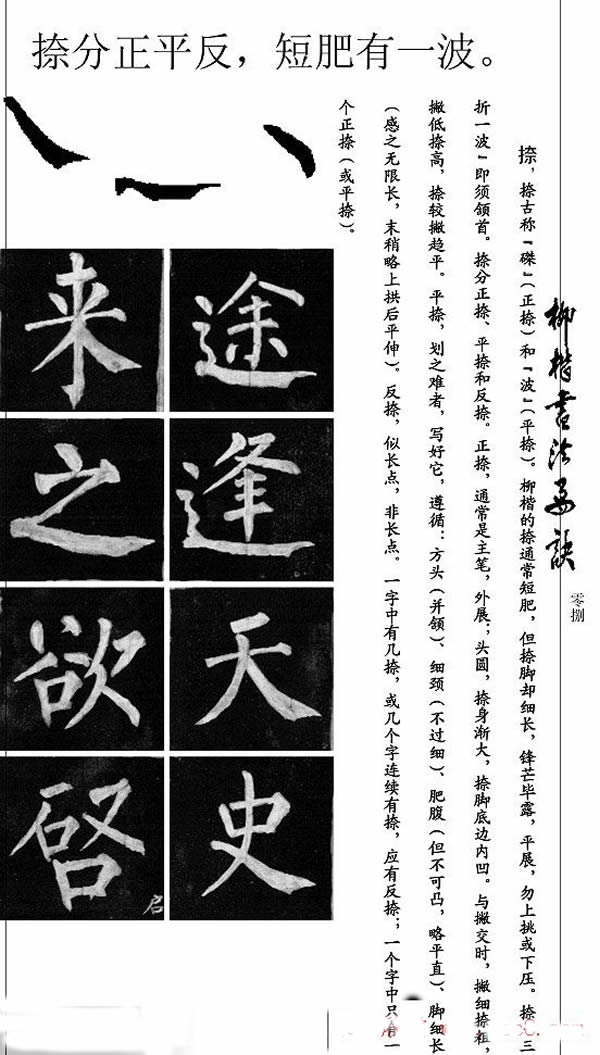 捺分正平反，短肥有一波。
柳楷書法要訣
零捌
捺，捺古称“磔”（正捺）和“波”（平捺）。柳楷的捺通常短肥，但捺脚却细长，锋芒毕露，平展，勿上挑或下压。捺“三
折一波”即须领首。捺分正捺、平捺和反捺。正捺，通常是主笔，外展；头圆，捺身渐大，捺脚底边内凹。与撇交时，撇细捺粗，
撇低捺高，捺较撇趋平。平捺，划之难者，写好它，遵循：方头（并领）、细颈（不过细）、肥腹（但不可凸，略平直）、脚细长
（感之无限长，末稍略上拱后平伸）。反捺，似长点，非长点。一字中有几捺，或几个字连续有捺，应有反捺；一个字中只有一
个正捺（或平捺）。
途
逢
天
史
来
之
欲
啓
启